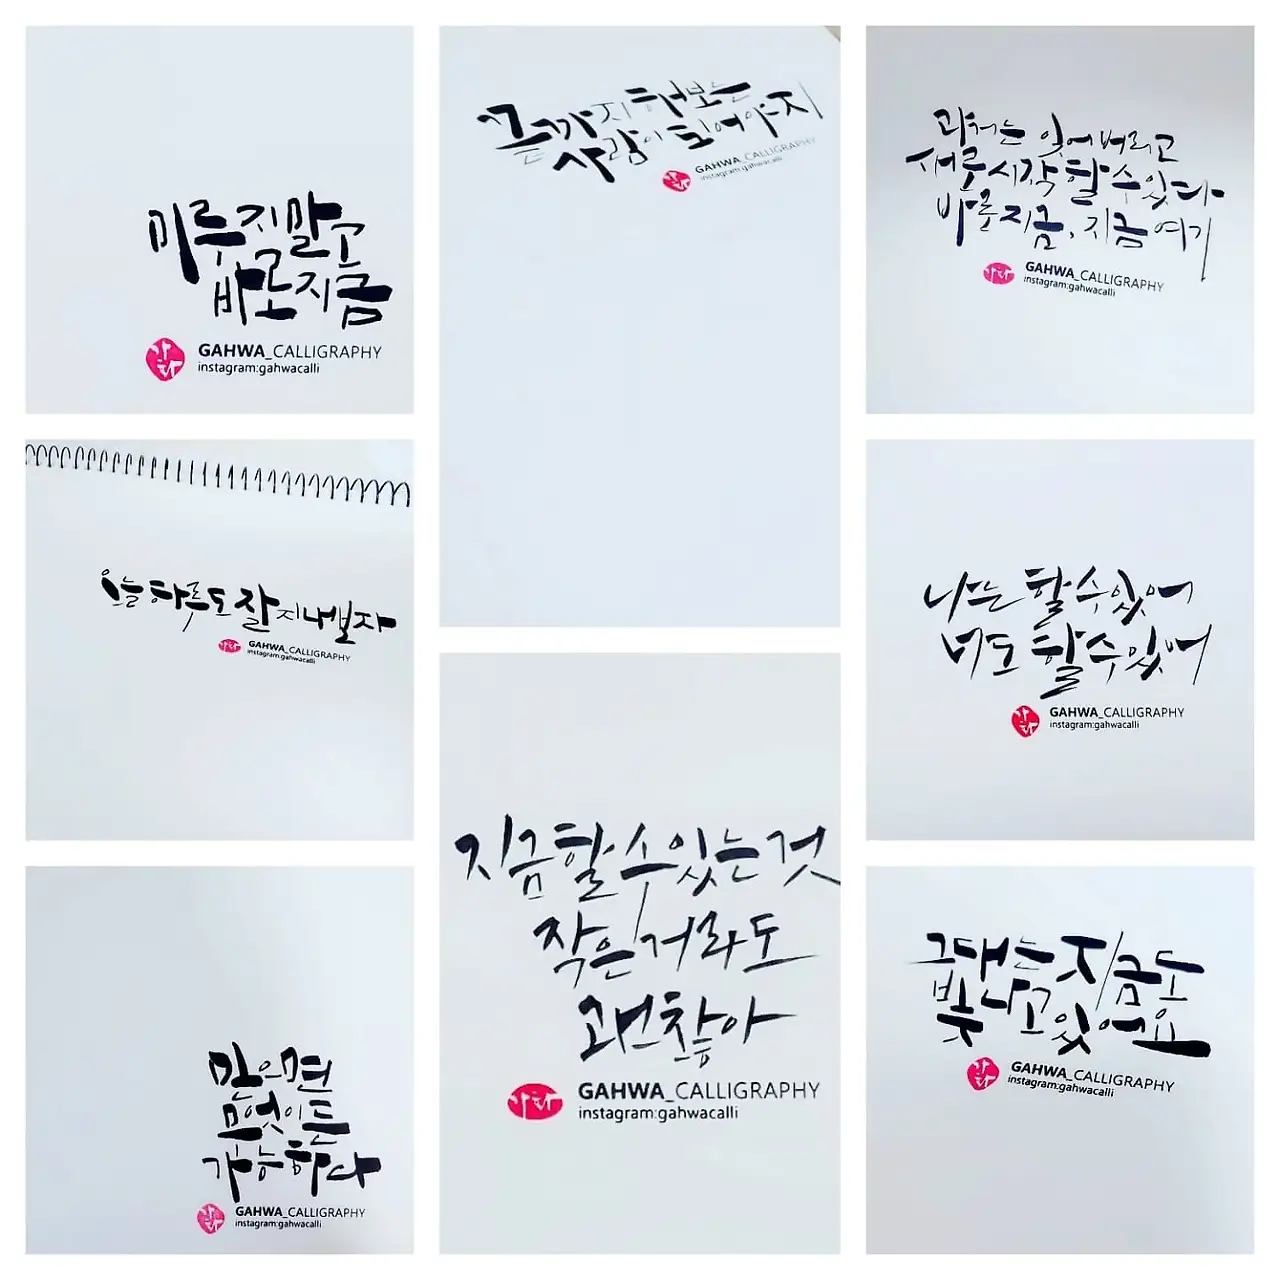 미루지말고
바로지금
가화
GAHWA_CALLIGRAPHY
instagram:gahwacalli
끝까지 해보는
사람이 되어야지
가화
GAHWA_CALLIGRAPHY
instagram:gahwacalli
과거는 잊어버리고
새로시작 할 수 있다
바로 지금, 지금 여기
가화
GAHWA_CALLIGRAPHY
instagram:gahwacalli
오늘 하루도 잘 지내보자
가화
GAHWA_CALLIGRAPHY
instagram:gahwacalli
나는 할 수 있어
너도 할 수 있어
가화
GAHWA_CALLIGRAPHY
instagram:gahwacalli
지금 할 수 있는 것
작은 거라도
괜찮아
가화
GAHWA_CALLIGRAPHY
instagram:gahwacalli
믿으면
무엇이든
가능하다
가화
GAHWA_CALLIGRAPHY
instagram:gahwacalli
그대는 지금도
빛나고 있어요
가화
GAHWA_CALLIGRAPHY
instagram:gahwacalli